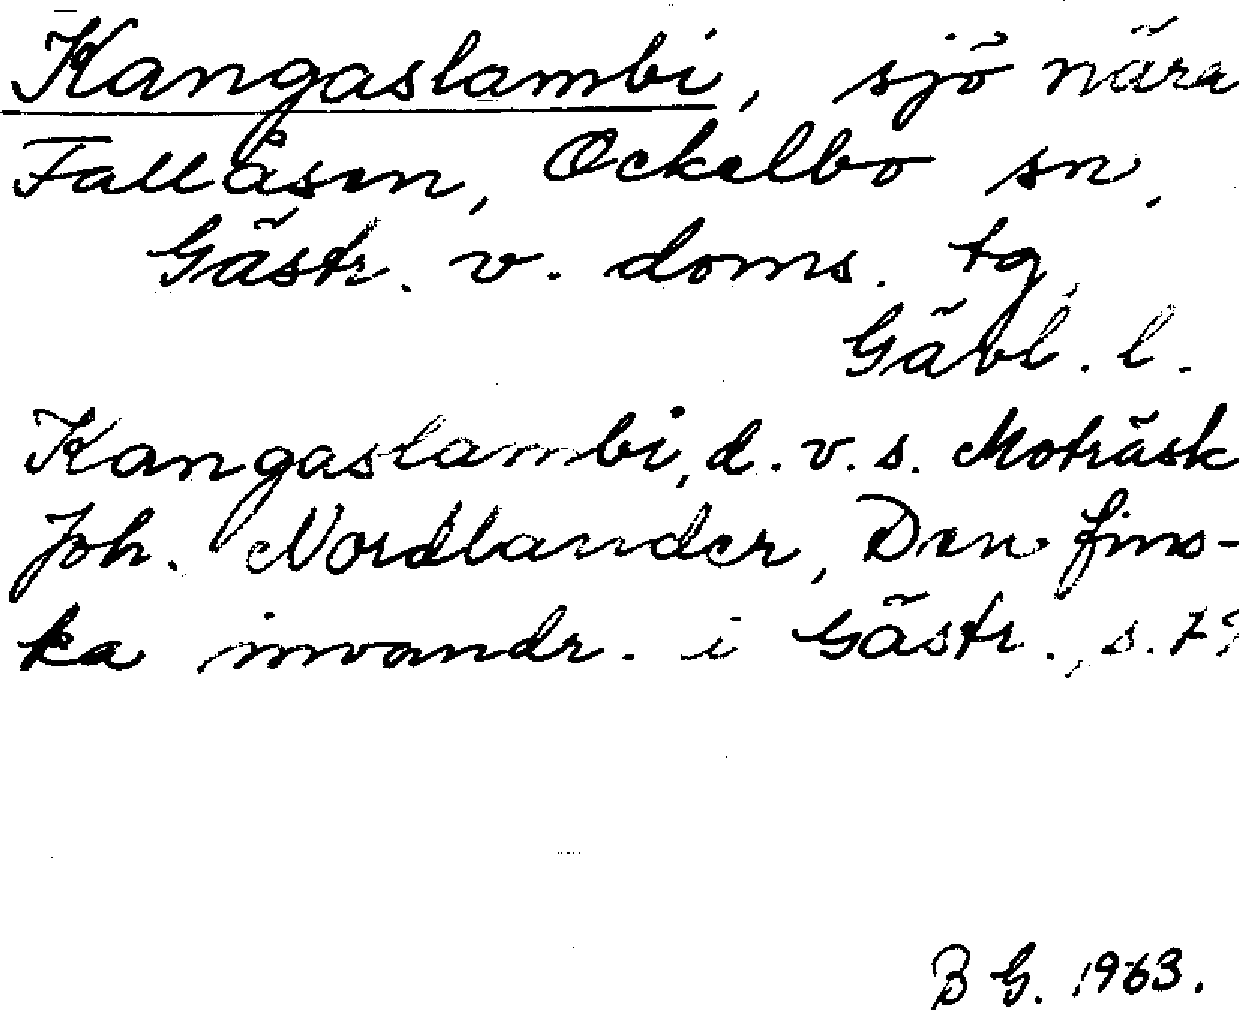 Kangaslambi, sjö nära
Fallåsen, Ockelbo sn,
Gästr. v. doms. tg,
Gävl. l.
Kangaslambi, d.v.s. Moträsk
Joh. Nordlander, Den fins-
ka invandr. i Gästr., s.
B G. 1963.